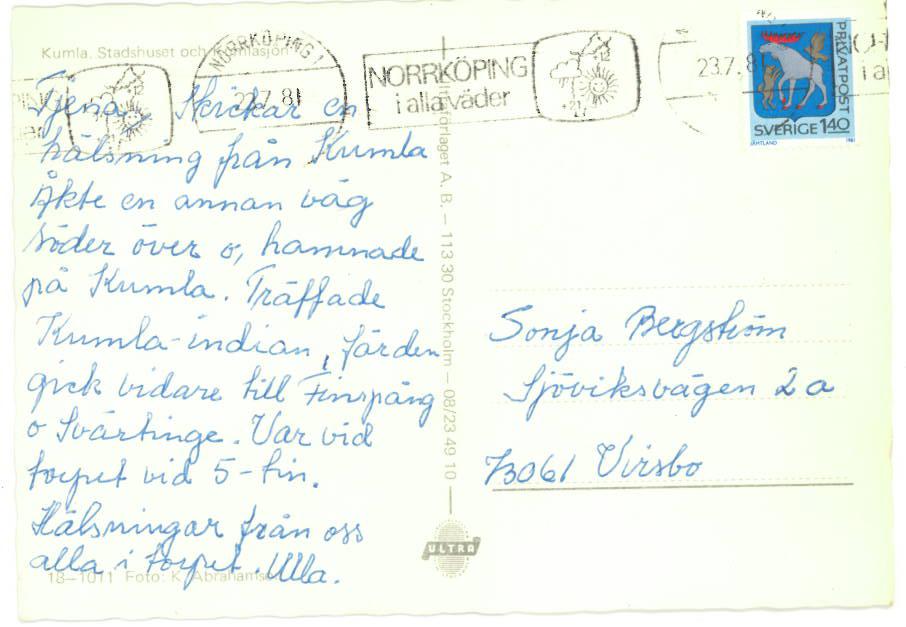 Kumla. Stadshuset och
NORRKÖPING 1
23.7.81
NORRKÖPING
i alla väder
+12
+21
23.7.81
PRIVATPOST
SVERIGE 140
JÄMTLAND
1981
Tjena. Skickar en
hälsning från Kumla
Åkte en annan väg
söder över o, hamnade
på Kumla. Träffade
Kumla-indian, färden
gick vidare till Finspång
o Svärtinge. Var vid
torpet vid 5-tin.
Hälsningar från oss
alla i torpet. Ulla.
förlaget A. B. – 113 30 Stockholm – 08/23 49 10
ULTRA
Sonja Bergström
Sjöviksvägen 2a
73061 Virsbo
18–1011 Foto: K. Abrahamson